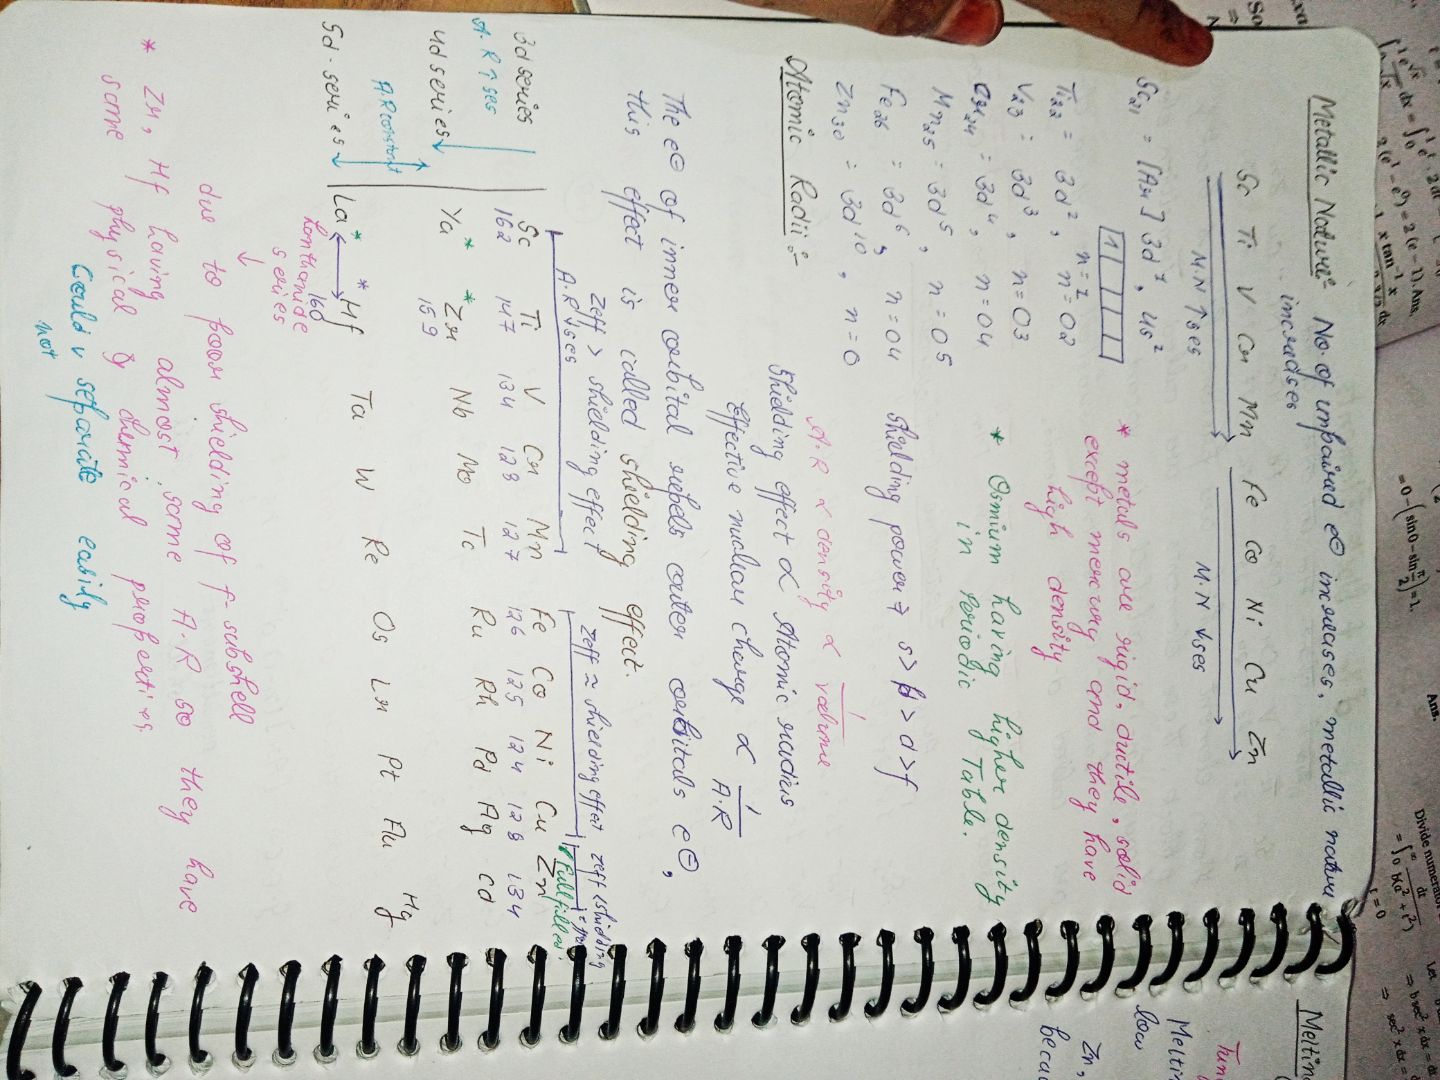 Metallic Nature:- No. of unpaired e⊖ increases, metallic nature
increases
Sc Ti V Cr Mn Fe Co Ni Cu Zn
M.N ↑ses M.N ↓ses
Sc21 = [Ar] 3d1, 4s2
1
n=1
Ti22 = 3d2, n=02
V23 = 3d3, n=03
Cr24 = 3d4, n=04
Mn25 = 3d5, n=05
Fe26 = 3d6, n=04
Zn30 = 3d10, n=0
* metals are rigid, ductile, solid
except mercury and they have
high density
* Osmium having higher density
in Periodic Table.
Shielding power → s>p>d>f
Atomic Radii:-
A.R ∝ density ∝ 1/volume
Shielding effect ∝ Atomic radius
Effective nuclear charge ∝ 1/A.R
The e⊖ of inner orbital repels outer orbitals e⊖,
this effect is called shielding effect.
Zeff > shielding effect Zeff ≈ shielding effect Zeff < shielding
A.R ↓ses Fullfilled
3d series Sc Ti V Cr Mn Fe Co Ni Cu Zn
A.R ↑ses 162 147 134 128 127 126 125 124 128 134
4d series Ya* Zr* Nb Mo Tc Ru Rh Pd Ag Cd
159
A.R constant
160
5d-series La* *Hf Ta W Re Os Lr Pt Au Hg
Lanthanide
series
due to poor shielding of f-subshell
* Zr, Hf having almost same A.R so they have
same physical & chemical properties
Could not separate easily
Melting
Melting
low
Zn,
beca
Ans.
Divide numerator